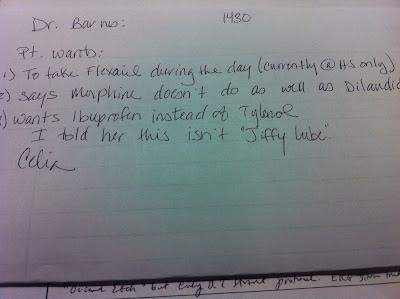 Dr. Barnes: 1430
Pt. wants:
1) To take Flexaril during the day (currently @ HS only)
2) says Morphine doesn't do as well as Dilaudid
3) wants Ibuprofen instead of Tylenol
I told her this isn't "Jiffy Lube"
Celia
but only
protocol.